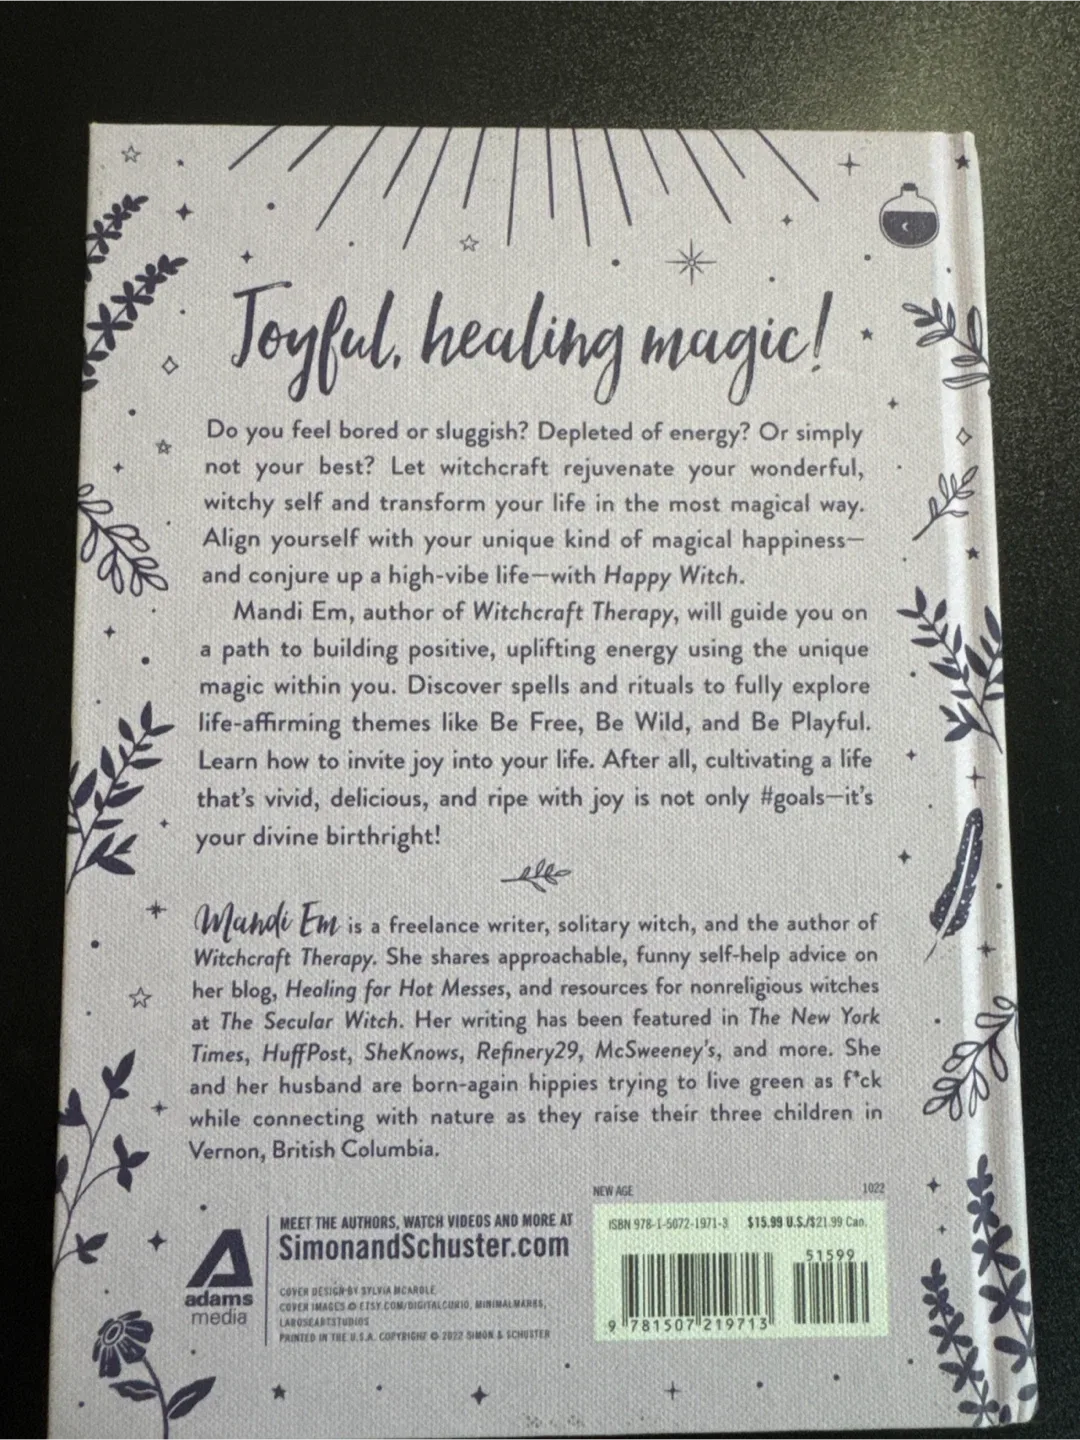 Joyful, healing magic!
Do you feel bored or sluggish? Depleted of energy? Or simply
not your best? Let witchcraft rejuvenate your wonderful,
witchy self and transform your life in the most magical way.
Align yourself with your unique kind of magical happiness—
and conjure up a high-vibe life—with Happy Witch.
Mandi Em, author of Witchcraft Therapy, will guide you on
a path to building positive, uplifting energy using the unique
magic within you. Discover spells and rituals to fully explore
life-affirming themes like Be Free, Be Wild, and Be Playful.
Learn how to invite joy into your life. After all, cultivating a life
that's vivid, delicious, and ripe with joy is not only #goals—it's
your divine birthright!
Mandi Em is a freelance writer, solitary witch, and the author of
Witchcraft Therapy. She shares approachable, funny self-help advice on
her blog, Healing for Hot Messes, and resources for nonreligious witches
at The Secular Witch. Her writing has been featured in The New York
Times, HuffPost, SheKnows, Refinery29, McSweeney's, and more. She
and her husband are born-again hippies trying to live green as f*ck
while connecting with nature as they raise their three children in
Vernon, British Columbia.
NEW AGE 1022
ISBN 978-1-5072-1971-3 $15.99 U.S./$21.99 Can.
51599
9 781507 219713
adams
media
MEET THE AUTHORS, WATCH VIDEOS AND MORE AT
SimonandSchuster.com
COVER DESIGN BY SYLVIA MCARDLE
COVER IMAGES © ETSY.COM/DIGITALCURIO, MINIMALMARKS,
LAROSEARTSTUDIOS
PRINTED IN THE U.S.A. COPYRIGHT © 2022 SIMON & SCHUSTER